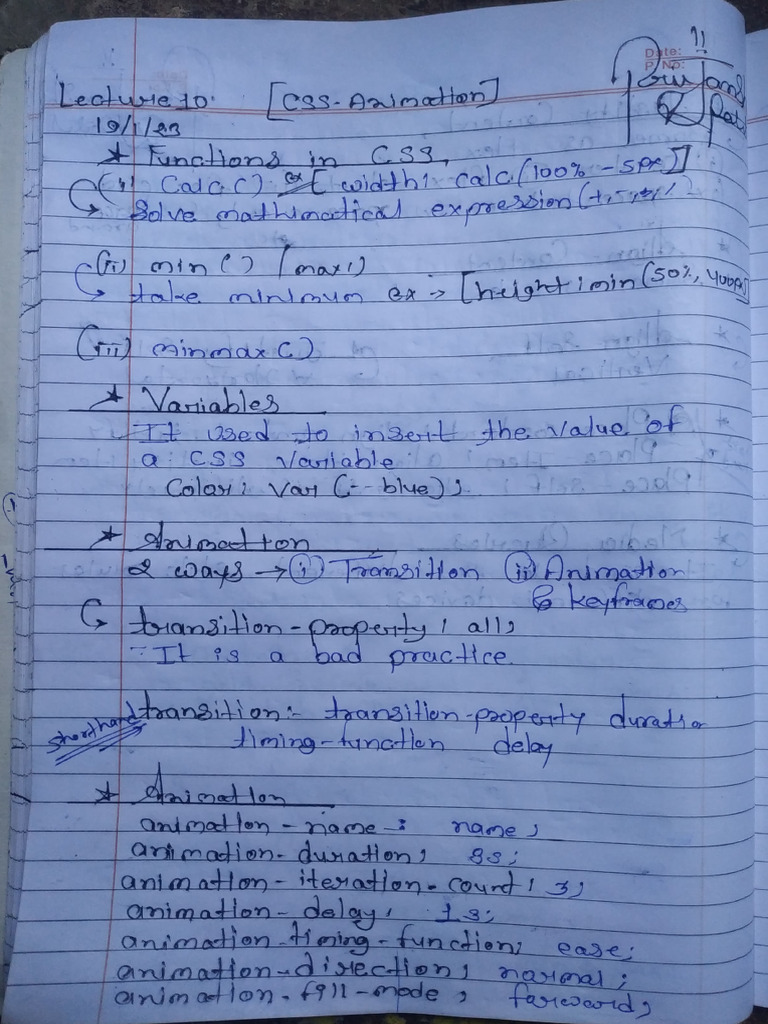 11
Date:
P. No:
Lecture 10. [CSS-Animation]
19/1/23
★ Functions in CSS,
(i) Calc() ex [width: calc(100% - 5px)]
Solve mathmatical expression (+, -, *, /
(ii) min() / max()
take minimum ex → [height: min(50%, 400px)
(iii) minmax()
★ Variables
It used to insert the value of
a CSS variable
Color: Var (--blue);
★ Animation
2 ways → (i) Transition (ii) Animation
& keyframes
transition-property: all;
∵ It is a bad practice
shorthand transition:- transition-property duration
timing-function delay
★ Animation
animation-name: name;
animation-duration: 8s;
animation-iteration-count: 3;
animation-delay: 1s;
animation-timing-function: ease;
animation-direction: normal;
animation-fill-mode: farword;